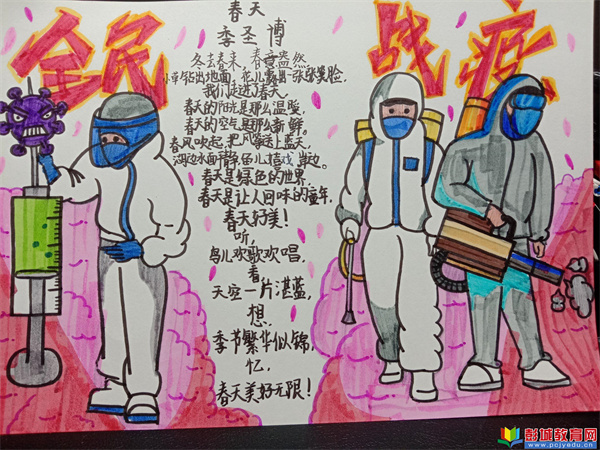 全民 战疫
春天
季圣博
冬去春来，春意盎然
小草钻出地面，花儿露出一张张笑脸，
我们走进了春天。
春天的阳光是那么温暖，
春天的空气是那么新鲜。
春风吹起，把风筝送上蓝天，
湖水水面静，鱼儿嬉戏游动。
春天是绿色的世界，
春天是让人回味的童年，
春天好美！
听，
鸟儿欢歌欢唱，
看
天空一片湛蓝，
想，
季节繁华似锦，
忆，
春天美好无限！
彭城教育网
www.pcjyedu.cn